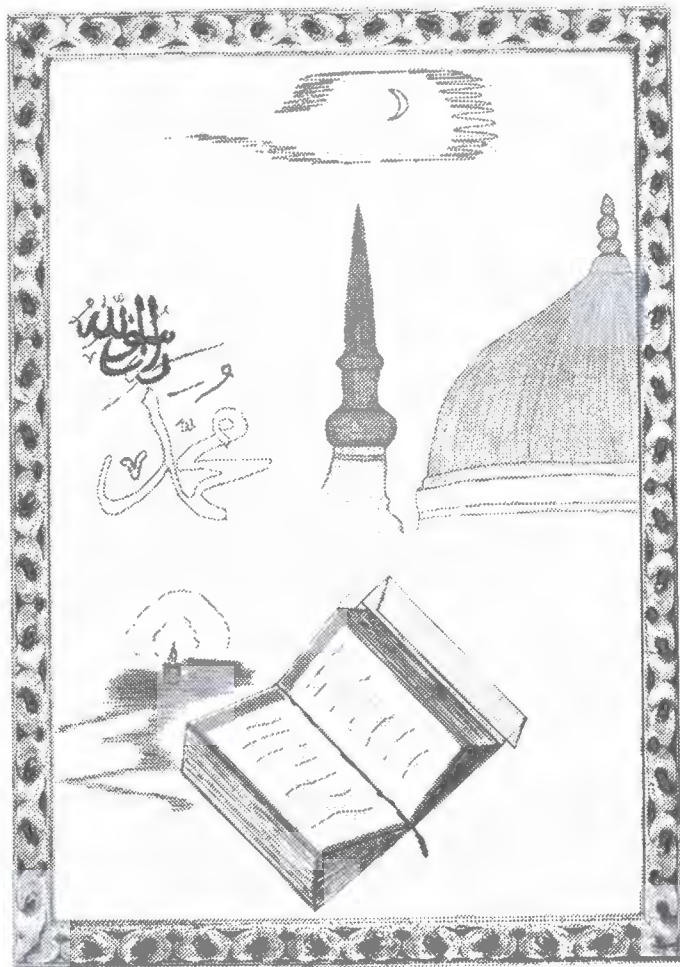 رسول الله
محمد